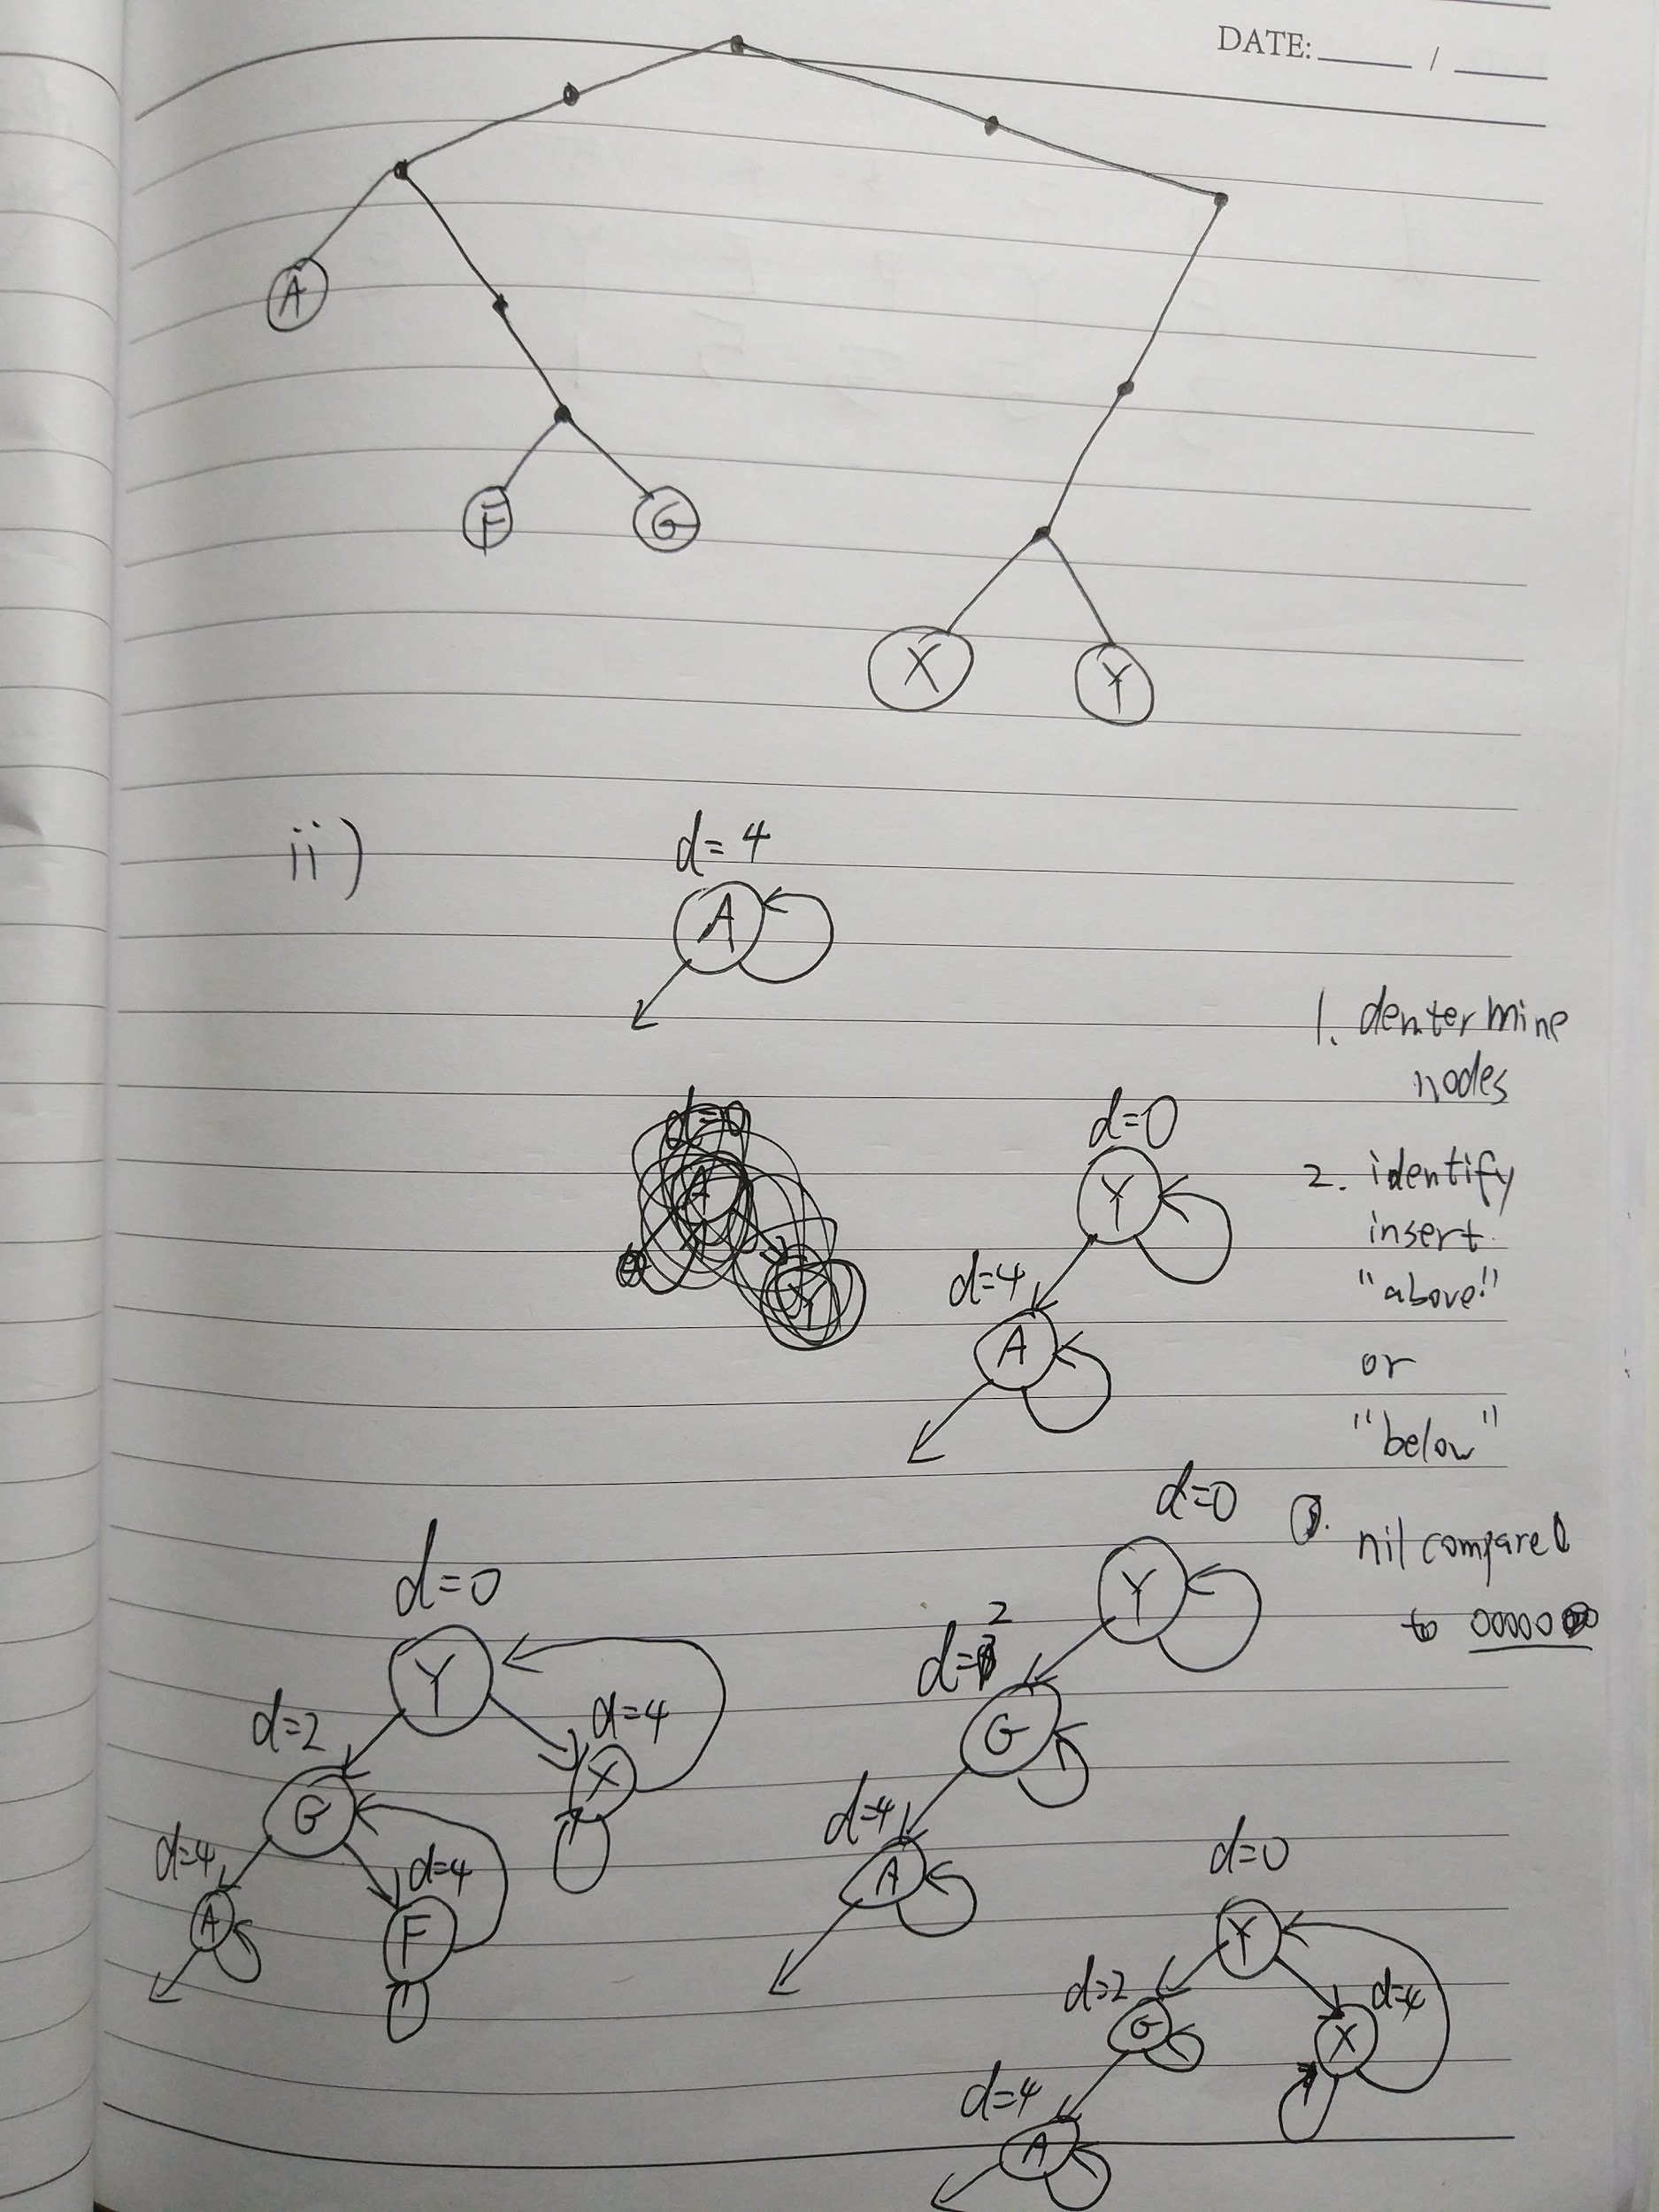 DATE: /
A
F
G
X
Y
ii)
d=4
A
1. dentermine
nodes
d=0
Y
d=4
A
2. identify
insert
"above"
or
"below"
d=0
A
Y
nil compared
to 00000
d=0
Y
d=2
G
d=4
A
d=0
Y
d=2
G
d=4
X
d=4
A
d=4
F
d=0
Y
d=2
G
d=4
X
d=4
A